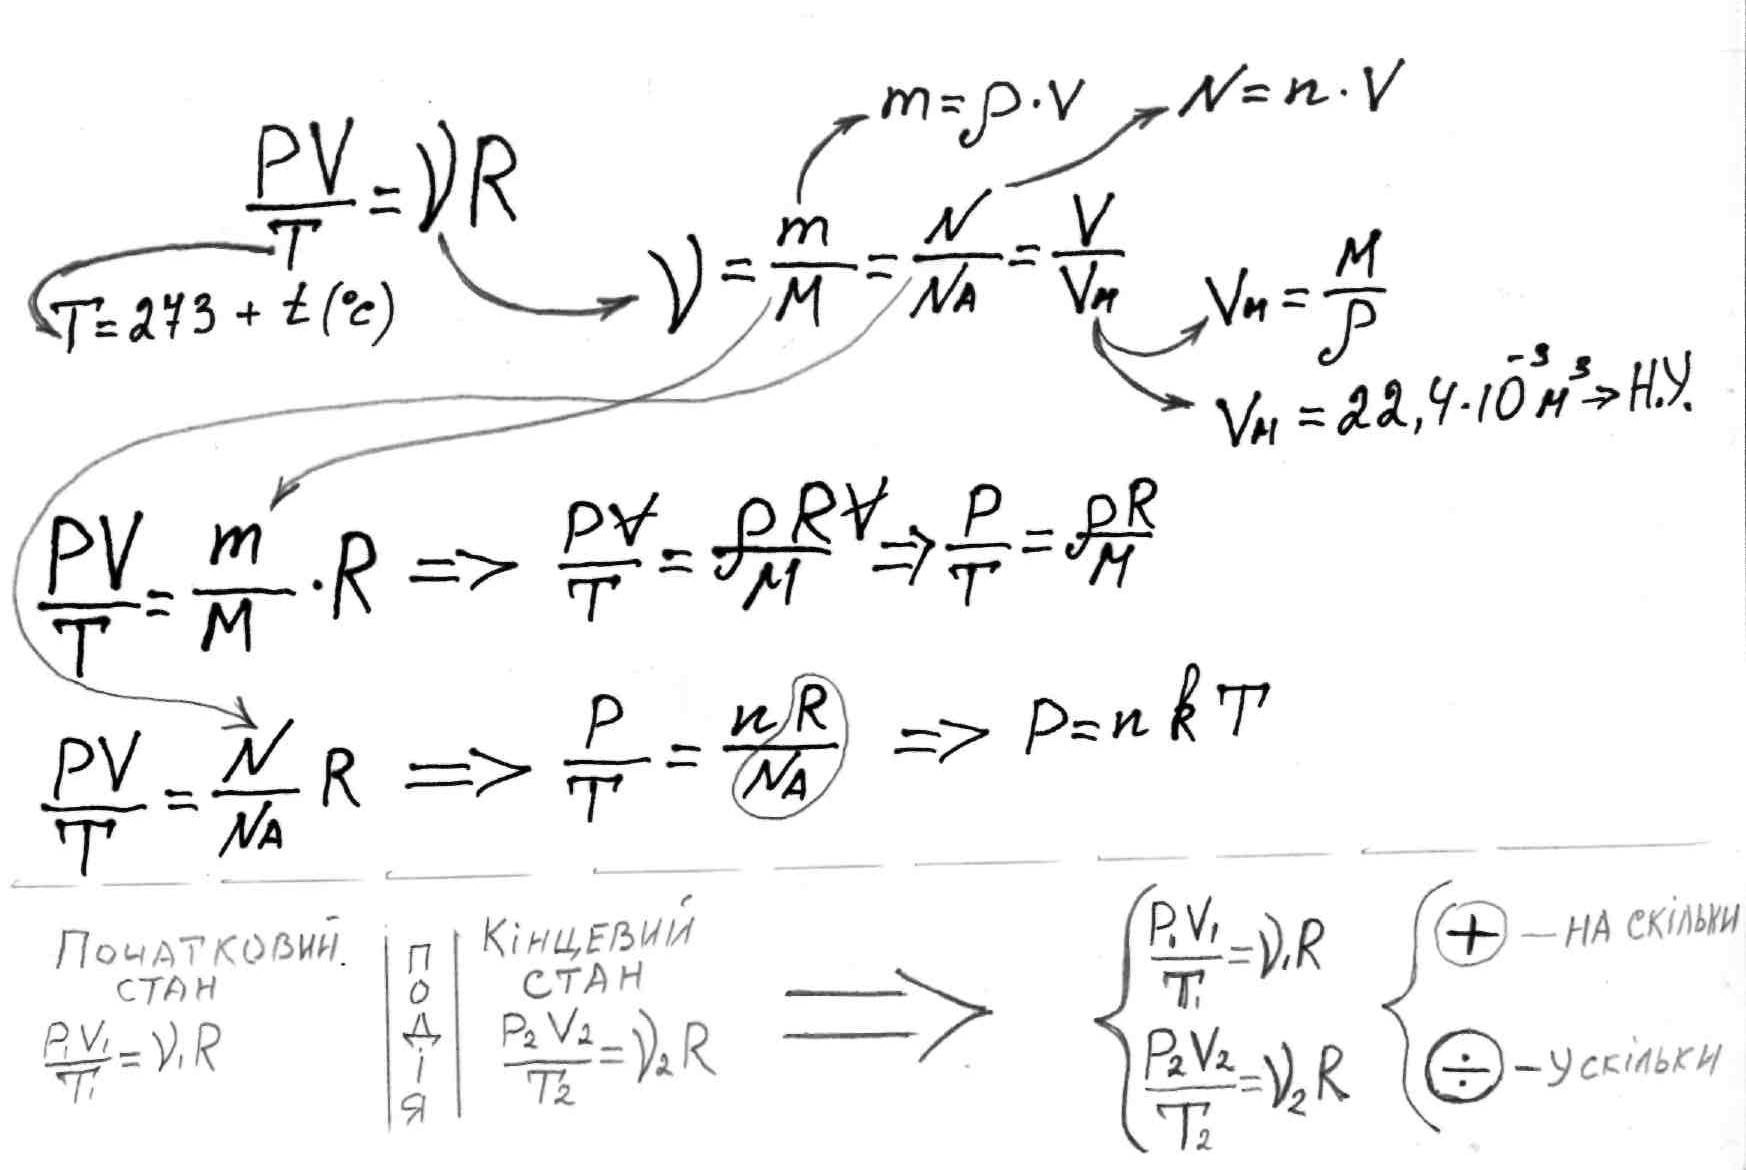 m = ρ · V
N = n · V
PV/T = νR
T = 273 + t (°c)
ν = m/M = N/NA = V/Vм
Vм = M/ρ
Vм = 22,4 · 10⁻³ м³ → Н.У.
PV/T = m/M · R => PV/T = ρRV/M => P/T = ρR/M
PV/T = N/NA R => P/T = nR/NA => P = n k T
ПОЧАТКОВИЙ
СТАН
P₁V₁/T₁ = ν₁R
ПОДІЯ
КІНЦЕВИЙ
СТАН
P₂V₂/T₂ = ν₂R
=>
P₁V₁/T₁ = ν₁R
P₂V₂/T₂ = ν₂R
+ – НА СКІЛЬКИ
÷ – У СКІЛЬКИ